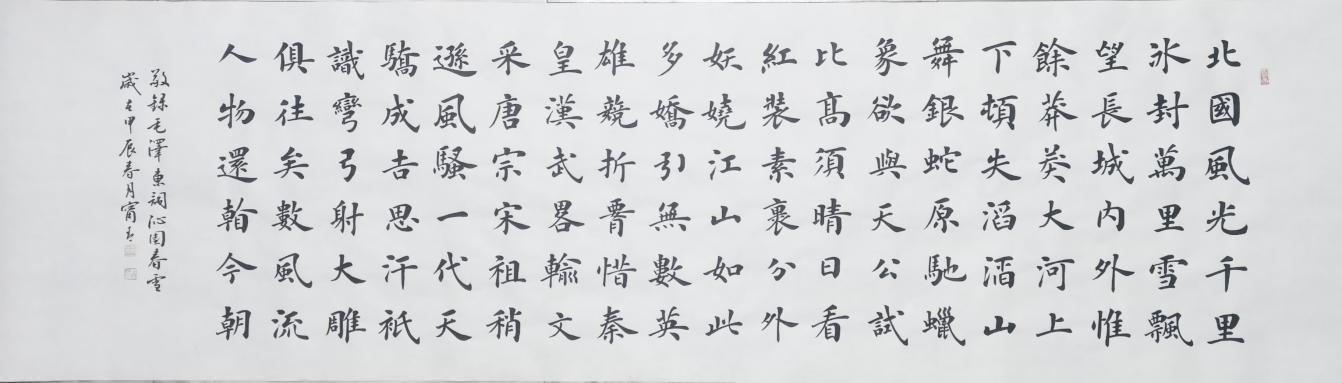 北國風光千里
冰封萬里雪飄
望長城内外惟
餘莽莽大河上
下頓失滔滔山
舞銀蛇原馳蠟
象欲與天公試
比髙須晴日看
紅裝素裹分外
妖嬈江山如此
多嬌引無數英
雄競折腰惜秦
皇漢武畧輸文
采唐宗宋祖稍
遜風騷一代天
驕成吉思汗衹
識彎弓射大雕
俱往矣數風流
人物還看今朝
敬錄毛澤東詞沁園春雪
歲在甲辰春月甯